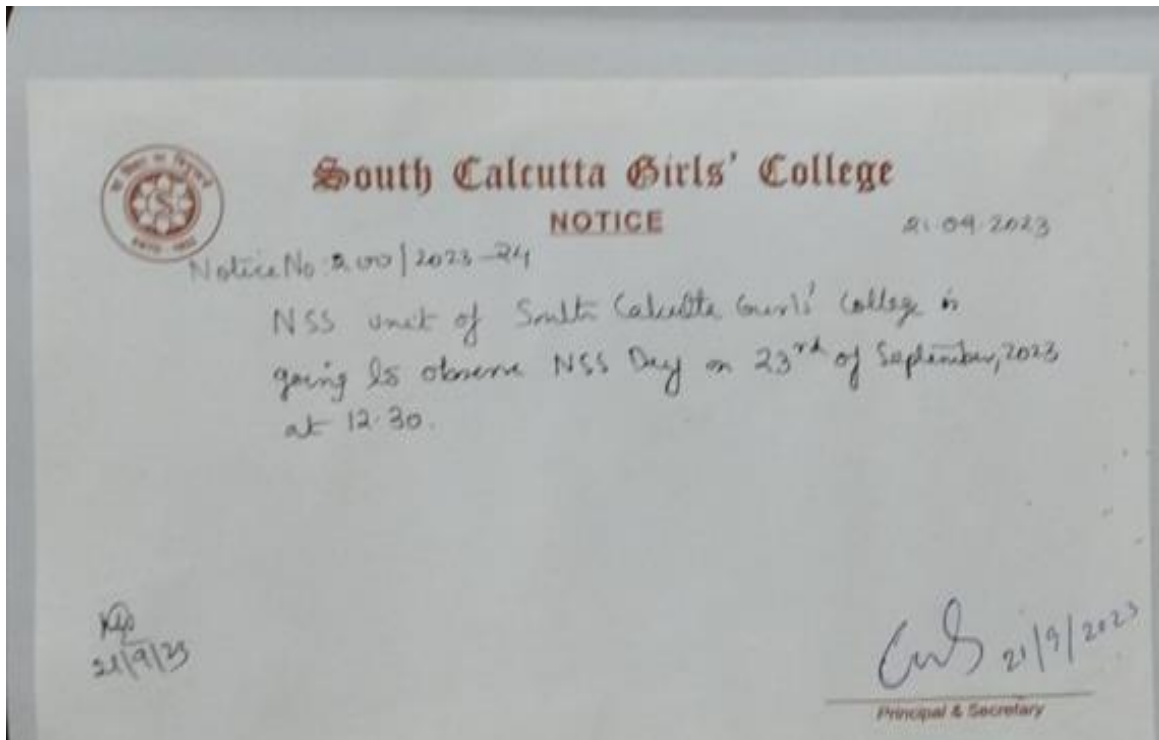 South Calcutta Girls' College
NOTICE
21.09.2023
Notice No 200/2023-24
NSS unit of South Calcutta Girls' College is
going to observe NSS Day on 23rd of September, 2023
at 12.30.
21/9/23
21/9/2023
Principal & Secretary